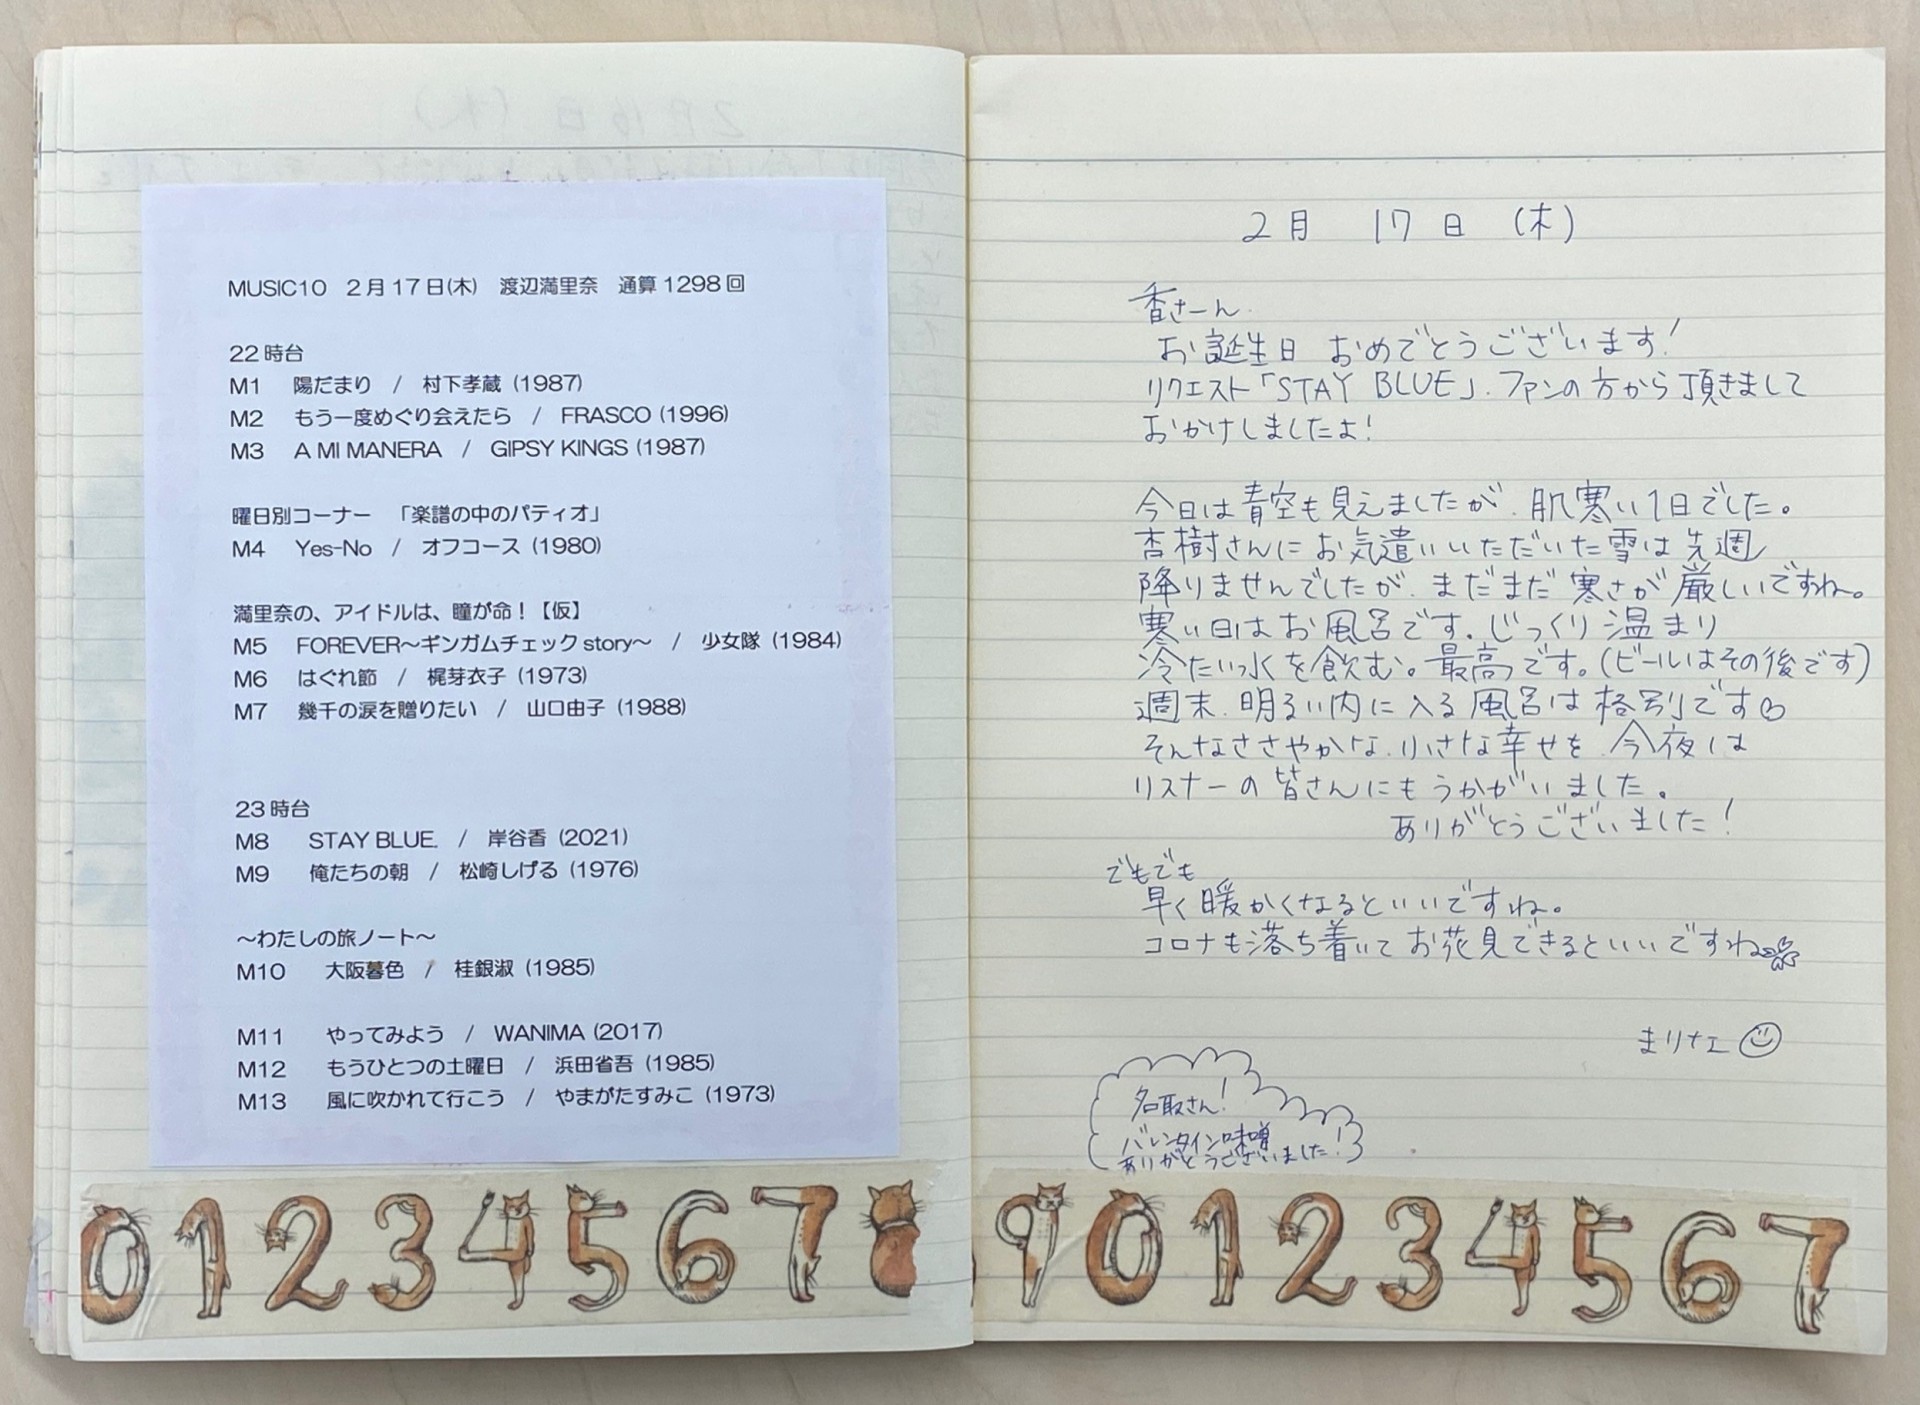 MUSIC10 2月17日(木) 渡辺満里奈 通算1298回
22時台
M1 陽だまり / 村下孝蔵 (1987)
M2 もう一度めぐり会えたら / FRASCO (1996)
M3 A MI MANERA / GIPSY KINGS (1987)
曜日別コーナー 「楽譜の中のパティオ」
M4 Yes-No / オフコース (1980)
満里奈の、アイドルは、瞳が命！【仮】
M5 FOREVER～ギンガムチェックstory～ / 少女隊 (1984)
M6 はぐれ節 / 梶芽衣子 (1973)
M7 幾千の涙を贈りたい / 山口由子 (1988)
23時台
M8 STAY BLUE. / 岸谷香 (2021)
M9 俺たちの朝 / 松崎しげる (1976)
～わたしの旅ノート～
M10 大阪暮色 / 桂銀淑 (1985)
M11 やってみよう / WANIMA (2017)
M12 もうひとつの土曜日 / 浜田省吾 (1985)
M13 風に吹かれて行こう / やまがたすみこ (1973)
0 1 2 3 4 5 6 7 8
2月 17日 (木)
香さーん
お誕生日 おめでとうございます！
リクエスト「STAY BLUE」. ファンの方から頂きまして
おかけしましたよ！
今日は青空も見えましたが、肌寒い1日でした。
杏樹さんにお気遣いいただいた雪は先週
降りませんでしたが、まだまだ寒さが厳しいですね。
寒い日はお風呂です。じっくり温まり
冷たい水を飲む。最高です。(ビールはその後です)
週末、明るい内に入る風呂は格別です♡
そんなささやかな、小さな幸せを、今夜は
リスナーの皆さんにもうかがいました。
ありがとうございました！
でもでも
早く暖かくなるといいですね。
コロナも落ち着いてお花見できるといいですね
まりナェ
名取さん！
バレンタイン味噌
ありがとうございました！
9 0 1 2 3 4 5 6 7